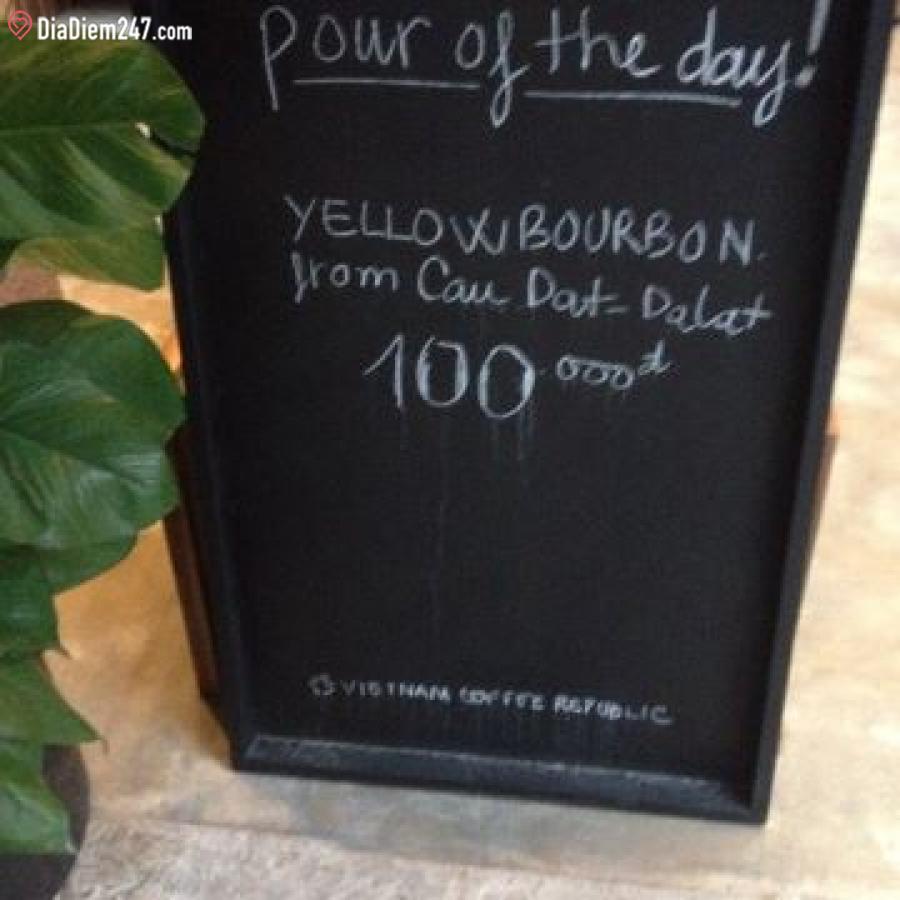 DiaDiem247.com
pour of the day!
YELLOW BOURBON.
from Cau Dat-Dalat
100.000đ
VIETNAM COFFEE REPUBLIC